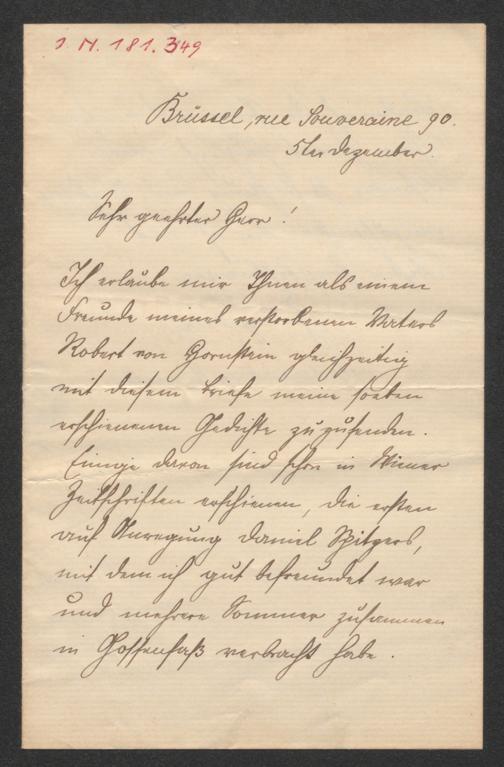 J. N. 181.349
Brüssel, rue Souveraine 90.
5ten Dezember.
Sehr geehrter Herr!
Ich erlaube mir Ihnen als einem
Freunde meines verstorbenen Vaters
Robert von Hornstein gleichzeitig
mit diesem Briefe meine soeben
erschienenen Gedichte zuzusenden.
Einige davon sind schon in Wiener
Zeitschriften erschienen, die ersten
auf Anregung Daniel Spitzers,
mit dem ich gut befreundet war
und mehrere Sommer zusammen
in Gossensaß verbracht habe.